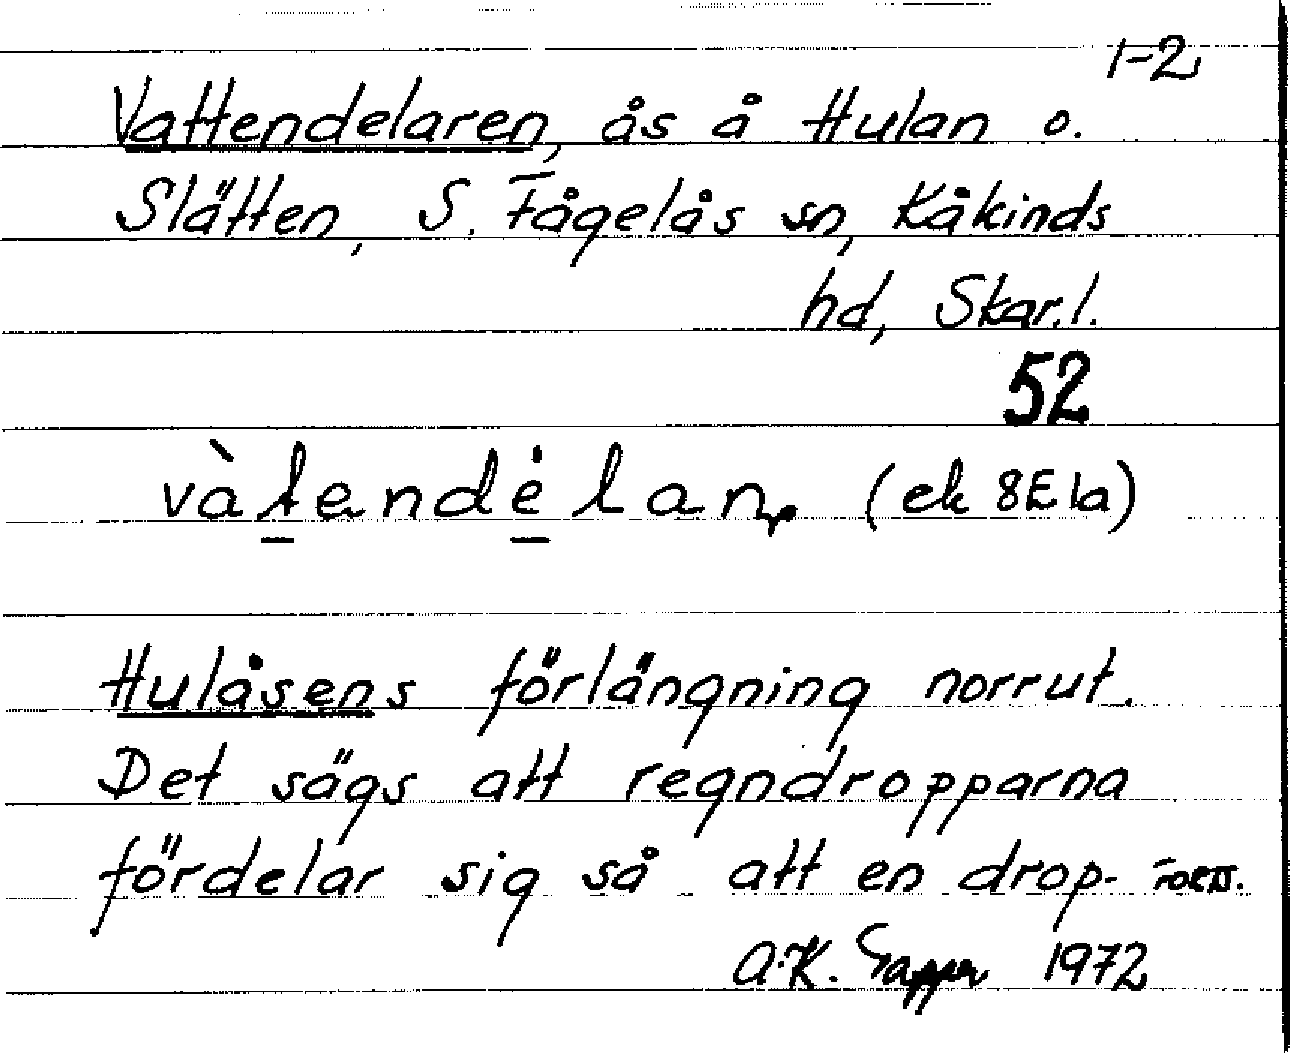 1-2
Vattendelaren, ås å Hulan o.
Slätten, S. Fågelås sn, Kåkinds
hd, Skar.l.
52
vàtendėlan, (ek 8E1a)
Hulåsens förlängning norrut.
Det sägs att regndropparna
fördelar sig så att en drop- forts.
A.K. 1972